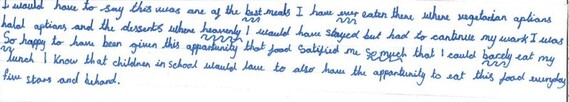 I would have to say this was one of the best meals I have ever eaten there where vegetarian options
halal options and the desserts where heavenly I would have stayed but had to continue my work I was
So happy to have been given this oppartunity that food Satisfied me So much that I could barely eat my
lunch I know that children in school would love to also have the oppartunity to eat this food everyday
five stars and behond.